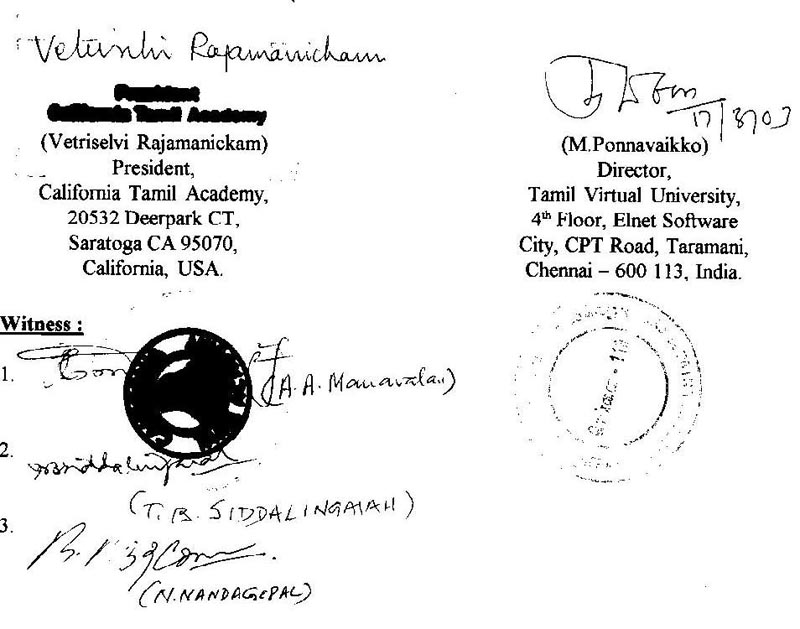 Vetrishi Rajamanickam
President
California Tamil Academy
(Vetriselvi Rajamanickam)
President,
California Tamil Academy,
20532 Deerpark CT,
Saratoga CA 95070,
California, USA.
17/3/03
(M.Ponnavaikko)
Director,
Tamil Virtual University,
4th Floor, Elnet Software
City, CPT Road, Taramani,
Chennai – 600 113, India.
Witness :
1.
(A.A. Manavalan)
2.
(T.B. SIDDALINGAIAH)
3.
(N.NANDAGOPAL)